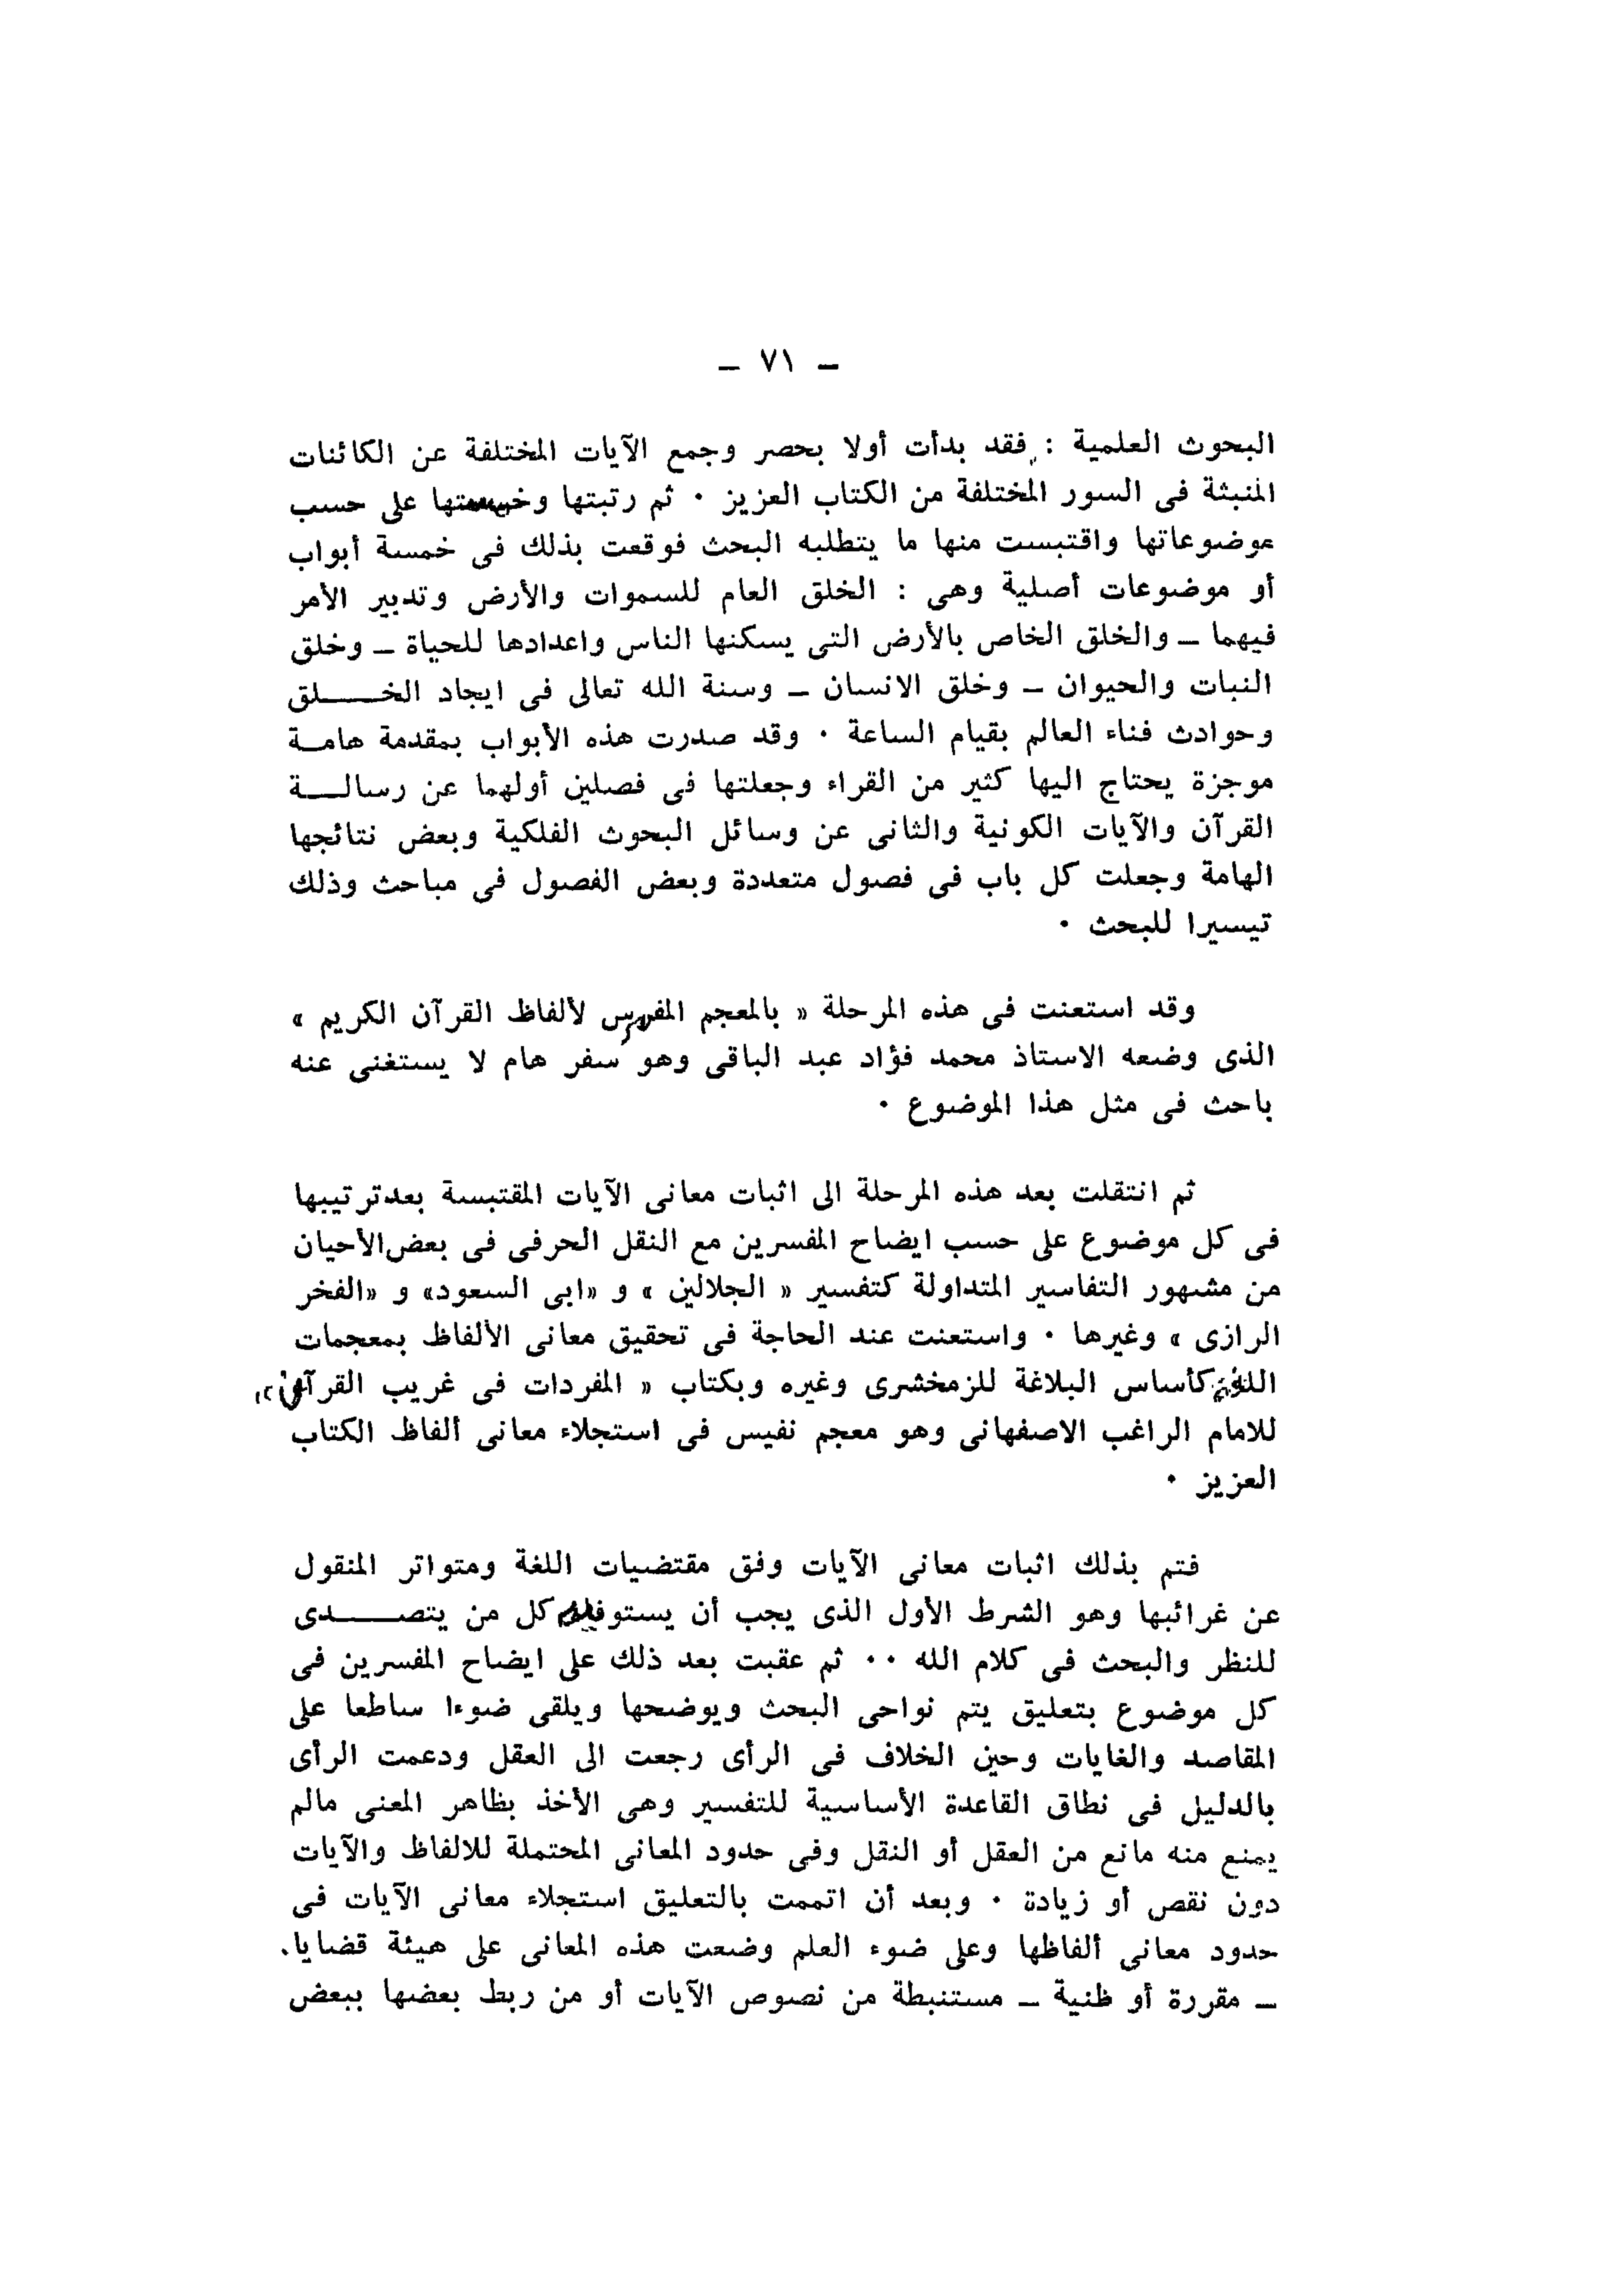 ـ ٧١ ـ
البحوث العلمية : فقد بدأت أولا بحصر وجمع الآيات المختلفة عن الكائنات
المنبثة فى السور المختلفة من الكتاب العزيز ٠ ثم رتبتها على حسب
موضوعاتها واقتبست منها ما يتطلبه البحث فوقعت بذلك فى خمسة أبواب
أو موضوعات أصلية وهى : الخلق العام للسموات والأرض وتدبير الأمر
فيهما ـ والخلق الخاص بالأرض التى يسكنها الناس واعدادها للحياة ـ وخلق
النبات والحيوان ـ وخلق الانسان ـ وسنة الله تعالى فى ايجاد الخـــــلق
وحوادث فناء العالم بقيام الساعة ٠ وقد صدرت هذه الأبواب بمقدمة هامـة
موجزة يحتاج اليها كثير من القراء وجعلتها فى فصلين أولهما عن رسالـــة
القرآن والآيات الكونية والثانى عن وسائل البحوث الفلكية وبعض نتائجها
الهامة وجعلت كل باب فى فصول متعددة وبعض الفصول فى مباحث وذلك
تيسيرا للبحث ٠
وقد استعنت فى هذه المرحلة « بالمعجم المفهرس لألفاظ القرآن الكريم »
الذى وضعه الاستاذ محمد فؤاد عبد الباقى وهو سفر هام لا يستغنى عنه
باحث فى مثل هذا الموضوع ٠
ثم انتقلت بعد هذه المرحلة الى اثبات معانى الآيات المقتبسة بعد ترتيبها
فى كل موضوع على حسب ايضاح المفسرين مع النقل الحرفى فى بعض الأحيان
من مشهور التفاسير المتداولة كتفسير « الجلالين » و «ابى السعود» و «الفخر
الرازى » وغيرها ٠ واستعنت عند الحاجة فى تحقيق معانى الألفاظ بمعجمات
اللغة كأساس البلاغة للزمخشرى وغيره وبكتاب « المفردات فى غريب القرآن »
للامام الراغب الاصفهانى وهو معجم نفيس فى استجلاء معانى ألفاظ الكتاب
العزيز ٠
فتم بذلك اثبات معانى الآيات وفق مقتضيات اللغة ومتواتر المنقول
عن غرائبها وهو الشرط الأول الذى يجب أن كل من يتصـــــدى
للنظر والبحث فى كلام الله ٠٠ ثم عقبت بعد ذلك على ايضاح المفسرين فى
كل موضوع بتعليق يتم نواحى البحث ويوضحها ويلقى ضوءا ساطعا على
المقاصد والغايات وحين الخلاف فى الرأى رجعت الى العقل ودعمت الرأى
بالدليل فى نطاق القاعدة الأساسية للتفسير وهى الأخذ بظاهر المعنى مالم
يمنع منه مانع من العقل أو النقل وفى حدود المعانى المحتملة للالفاظ والآيات
دون نقص أو زيادة ٠ وبعد أن اتممت بالتعليق استجلاء معانى الآيات فى
حدود معانى ألفاظها وعلى ضوء العلم وضعت هذه المعانى على هيئة قضايا.
ـ مقررة أو ظنية ـ مستنبطة من نصوص الآيات أو من ربط بعضها ببعض